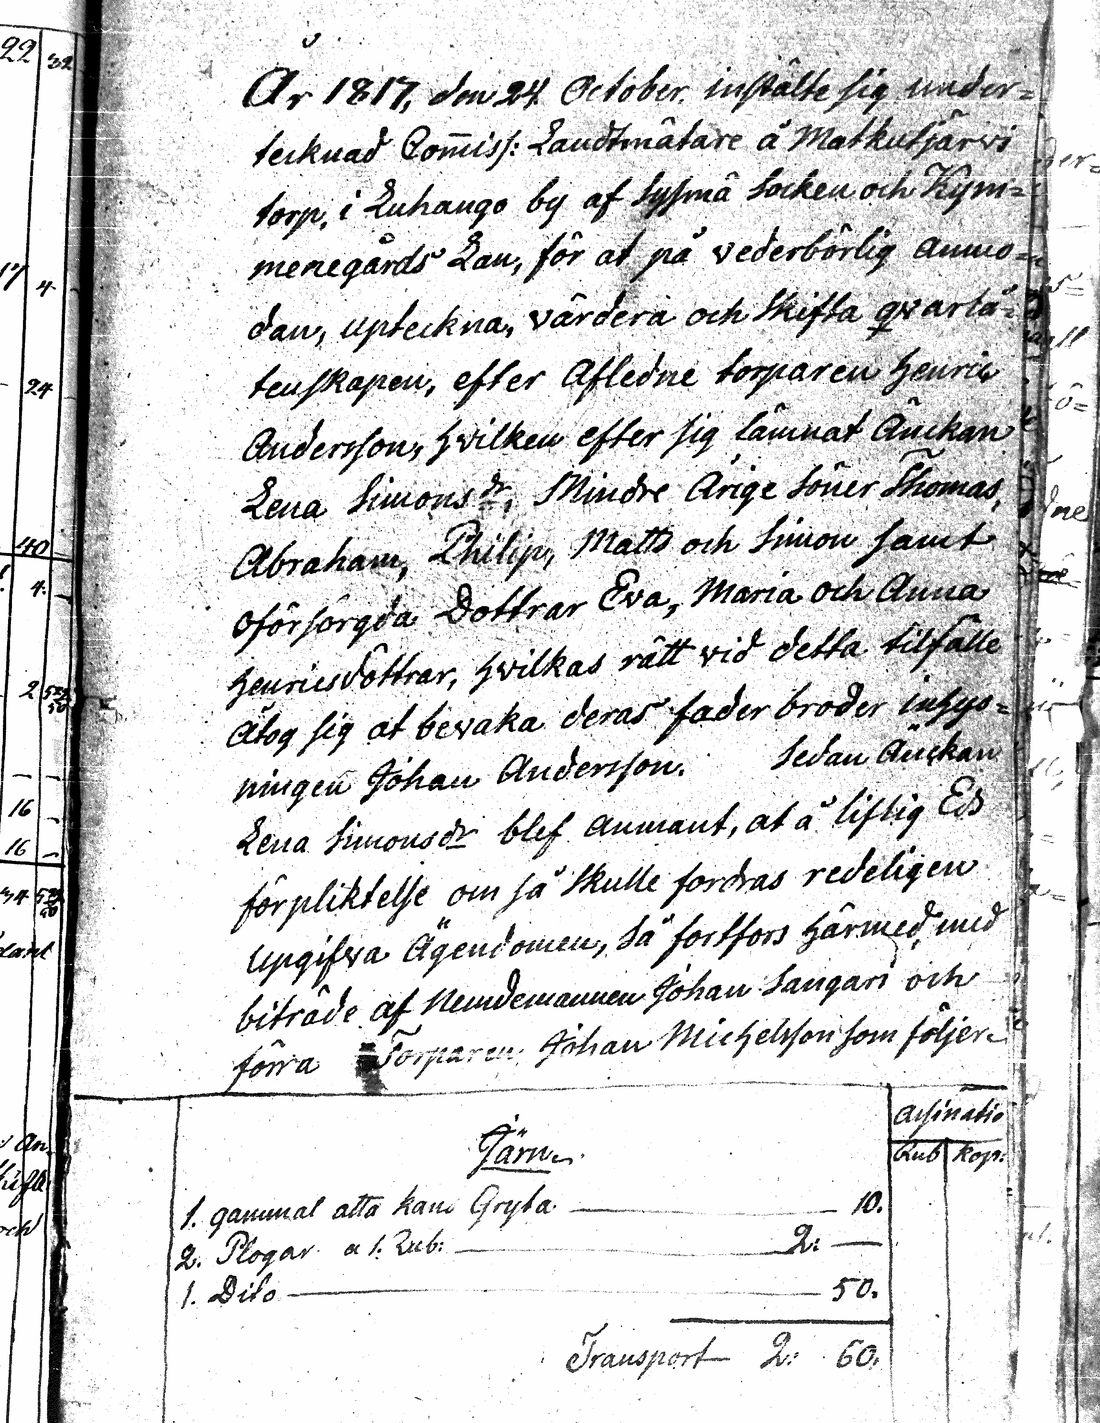 År 1817, den 24 October. instälte sig under=
tecknad Com̅iss: Landtmätare å Matkusjärvi
torp, i Luhango by af Sysmä Socken och Kym=
menegårds Län, för at på vederbörlig anmo=
dan, upteckna, värdera och Skifta qvarlå=
tenskapen, efter Afledne torparen Henric
Andersson, hvilken efter sig lämnat Änckan
Lena Simonsdr, Mindre Årige Söner Thomas,
Abraham, Philip, Matts och Simon samt
oförsörgda Dottrar Eva, Maria och Anna
Henricsdöttrar, hvilkas rätt vid detta tilfälle
Åtog sig at bevaka deras fader broder inhys=
ningen Johan Andersson. Sedan Änckan
Lena Simonsdr blef anmant, at å liflig Eds
förpliktelse om så Skulle fordras redeligen
upgifva Ägendomen, Så fortfors härmed, med
biträde af Nemdemannen Johan Sangari och
förra Torparen Johan Michelsson som följer
Assinatio
Rub kop:
Järn.
1. gammal åtta kans Gryta 10.
2. Plogar a 1: Rub: 2: —
1. Dito 50.
Transport 2: 60.
22 32
17 4
24
40
4
2
16
16
34